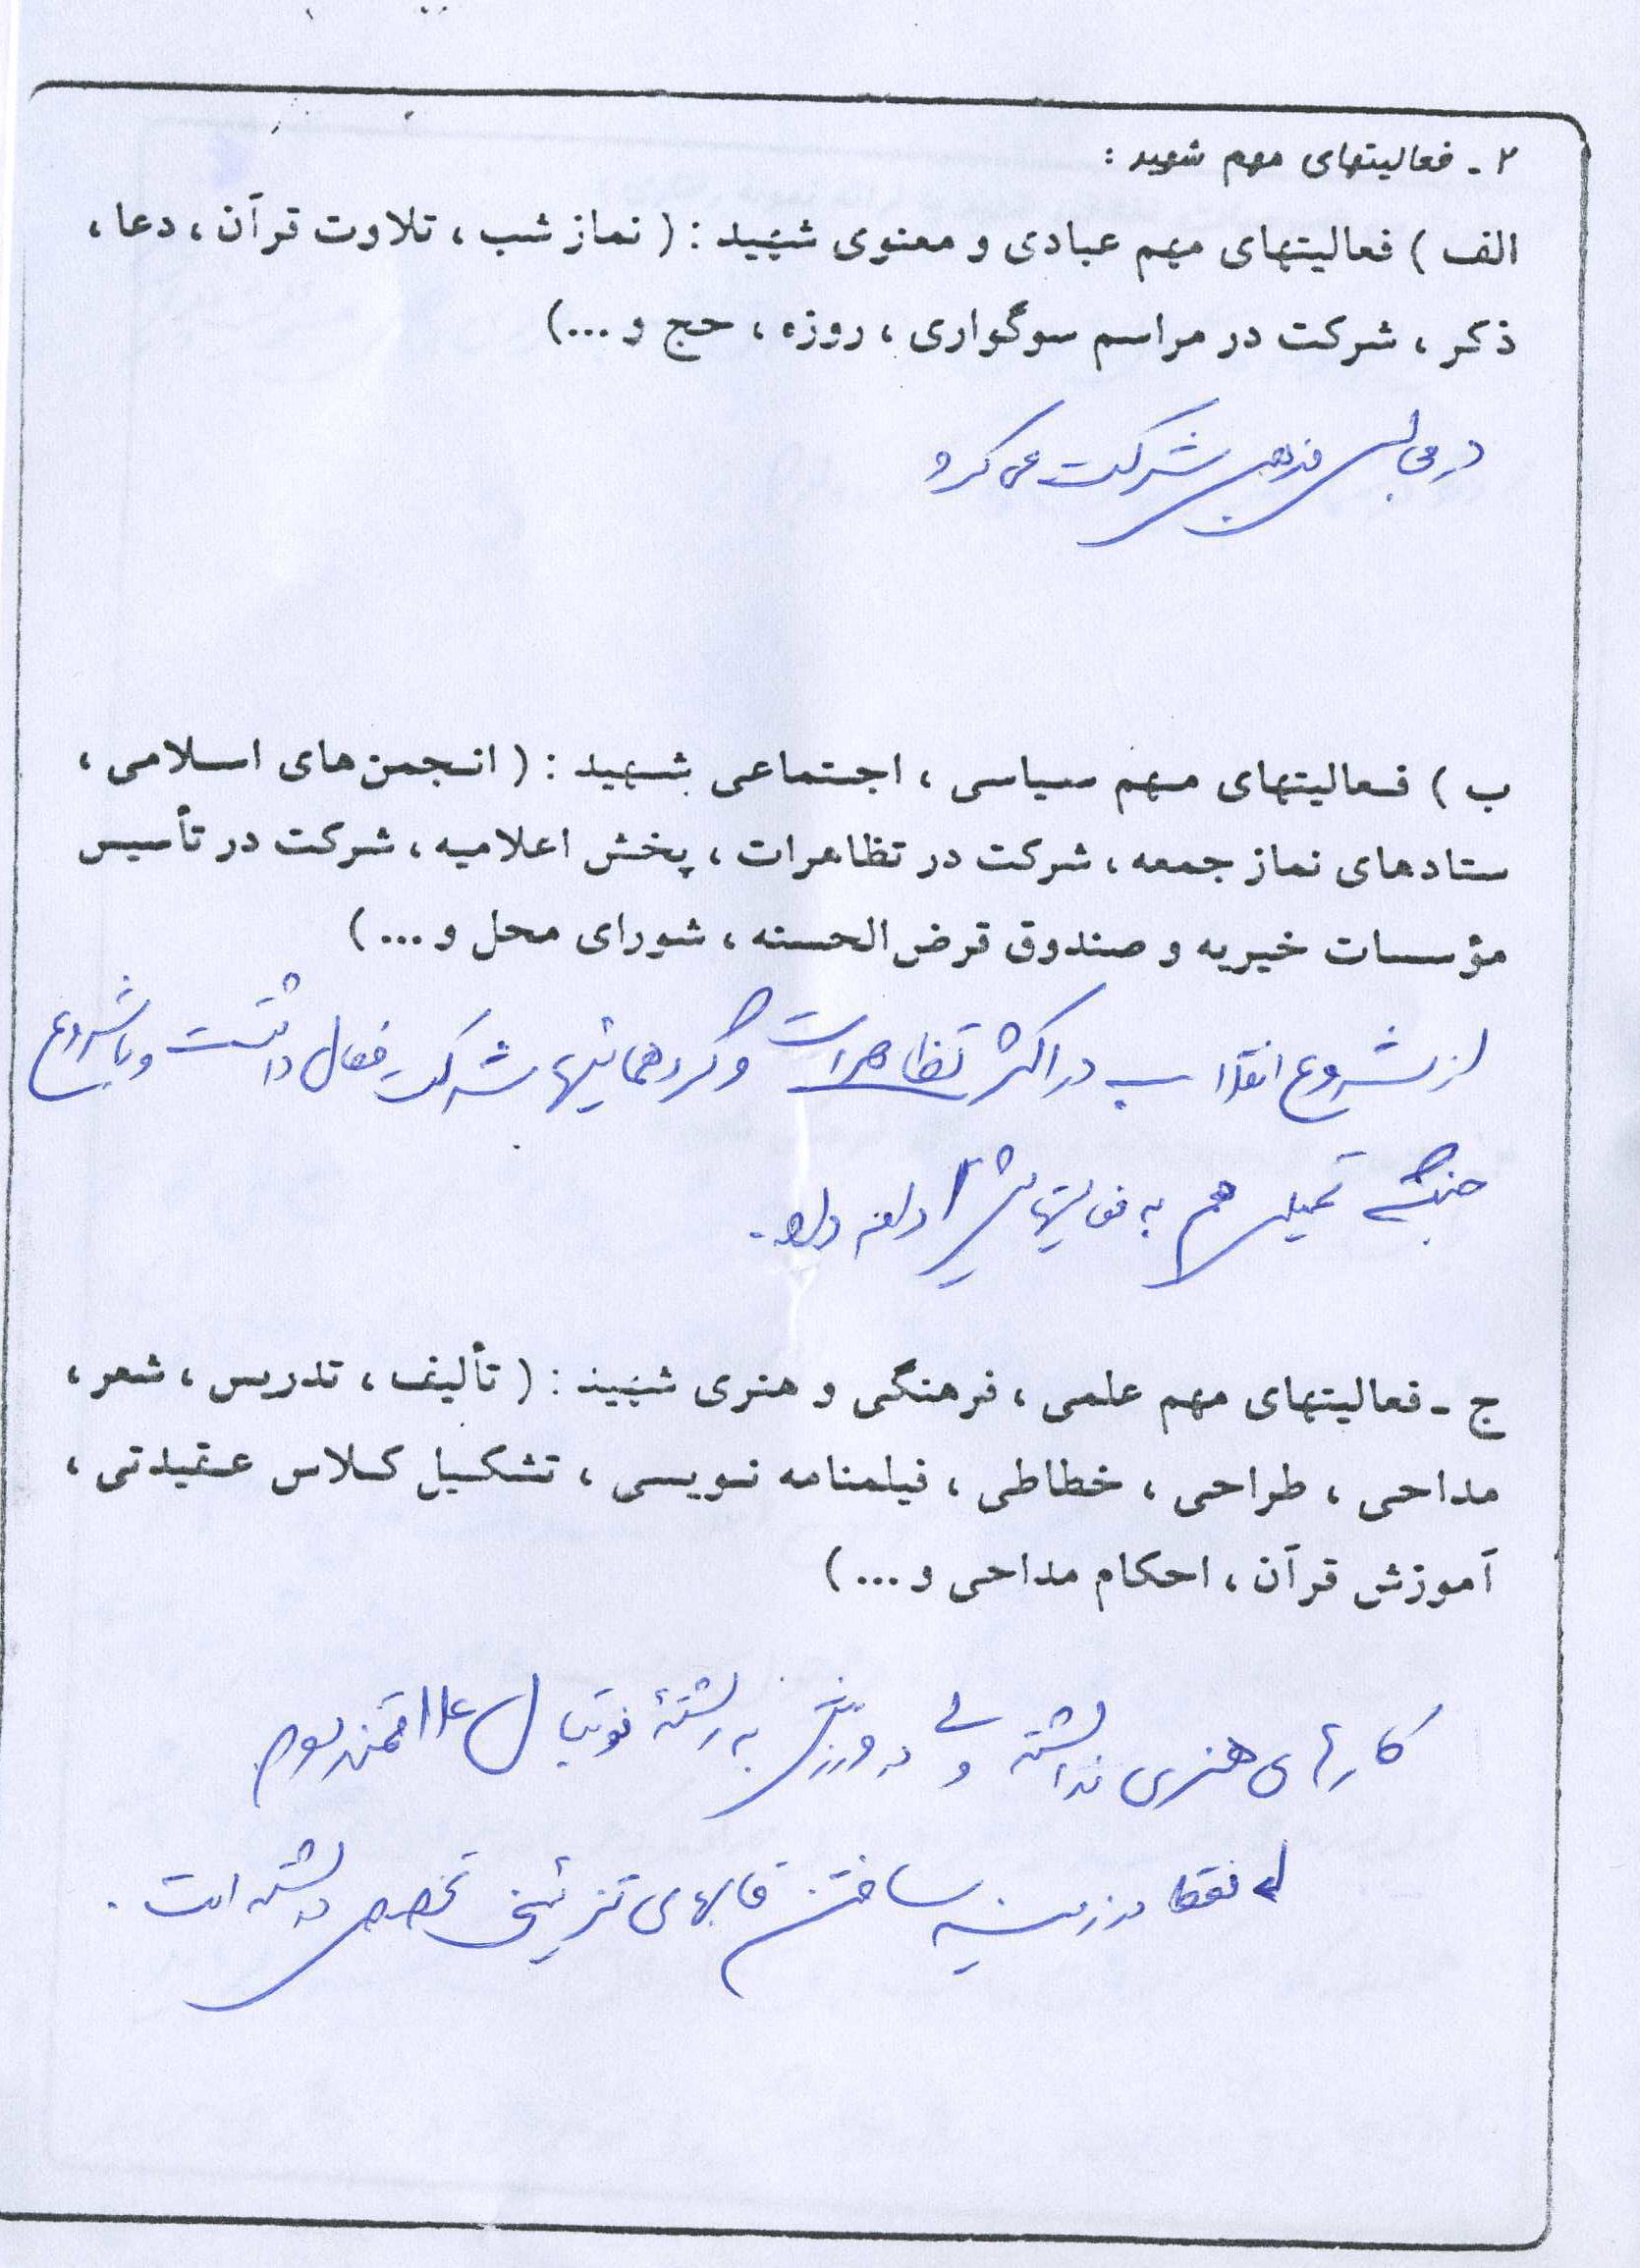 ۲ ـ فعالیتهای مهم شهید :
الف ) فعالیتهای مهم عبادی و معنوی شهید : ( نماز شب ، تلاوت قرآن ، دعا ،
ذکر ، شرکت در مراسم سوگواری ، روزه ، حج و ...)
در مجالس مذهبی شرکت می کرد
ب ) فعالیتهای مهم سیاسی ، اجتماعی شهید : ( انجمن های اسلامی ،
ستادهای نماز جمعه ، شرکت در تظاهرات ، پخش اعلامیه ، شرکت در تأسیس
مؤسسات خیریه و صندوق قرض الحسنه ، شورای محل و ... )
از شروع انقلاب در اکثر تظاهرات و گردهمائیها شرکت فعال داشت و با شروع
جنگ تحمیلی هم به فعالیتهایش ادامه داد .
ج ـ فعالیتهای مهم علمی ، فرهنگی و هنری شهید : ( تألیف ، تدریس ، شعر ،
مداحی ، طراحی ، خطاطی ، فیلمنامه نویسی ، تشکیل کلاس عقیدتی ،
آموزش قرآن ، احکام مداحی و ... )
کارهای هنری نداشته ولی در ورزش به رشتهٔ فوتبال علاقمند بود
فقط در زمینه ساختن قابهای تزئینی تخصص داشته است .